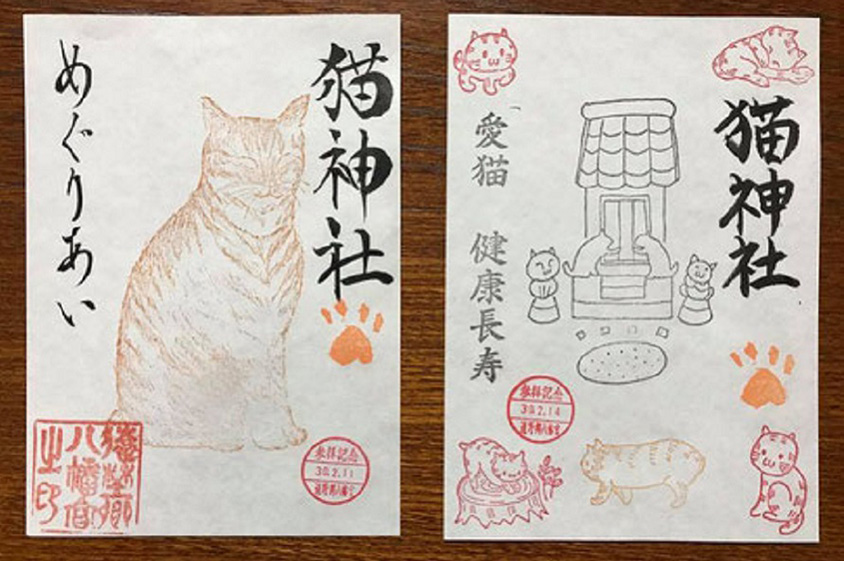 猫神社
めぐりあい
八幡宮
之印
参拝記念
30.2.11
猫神社
愛猫 健康長寿
参拝記念
30.2.14